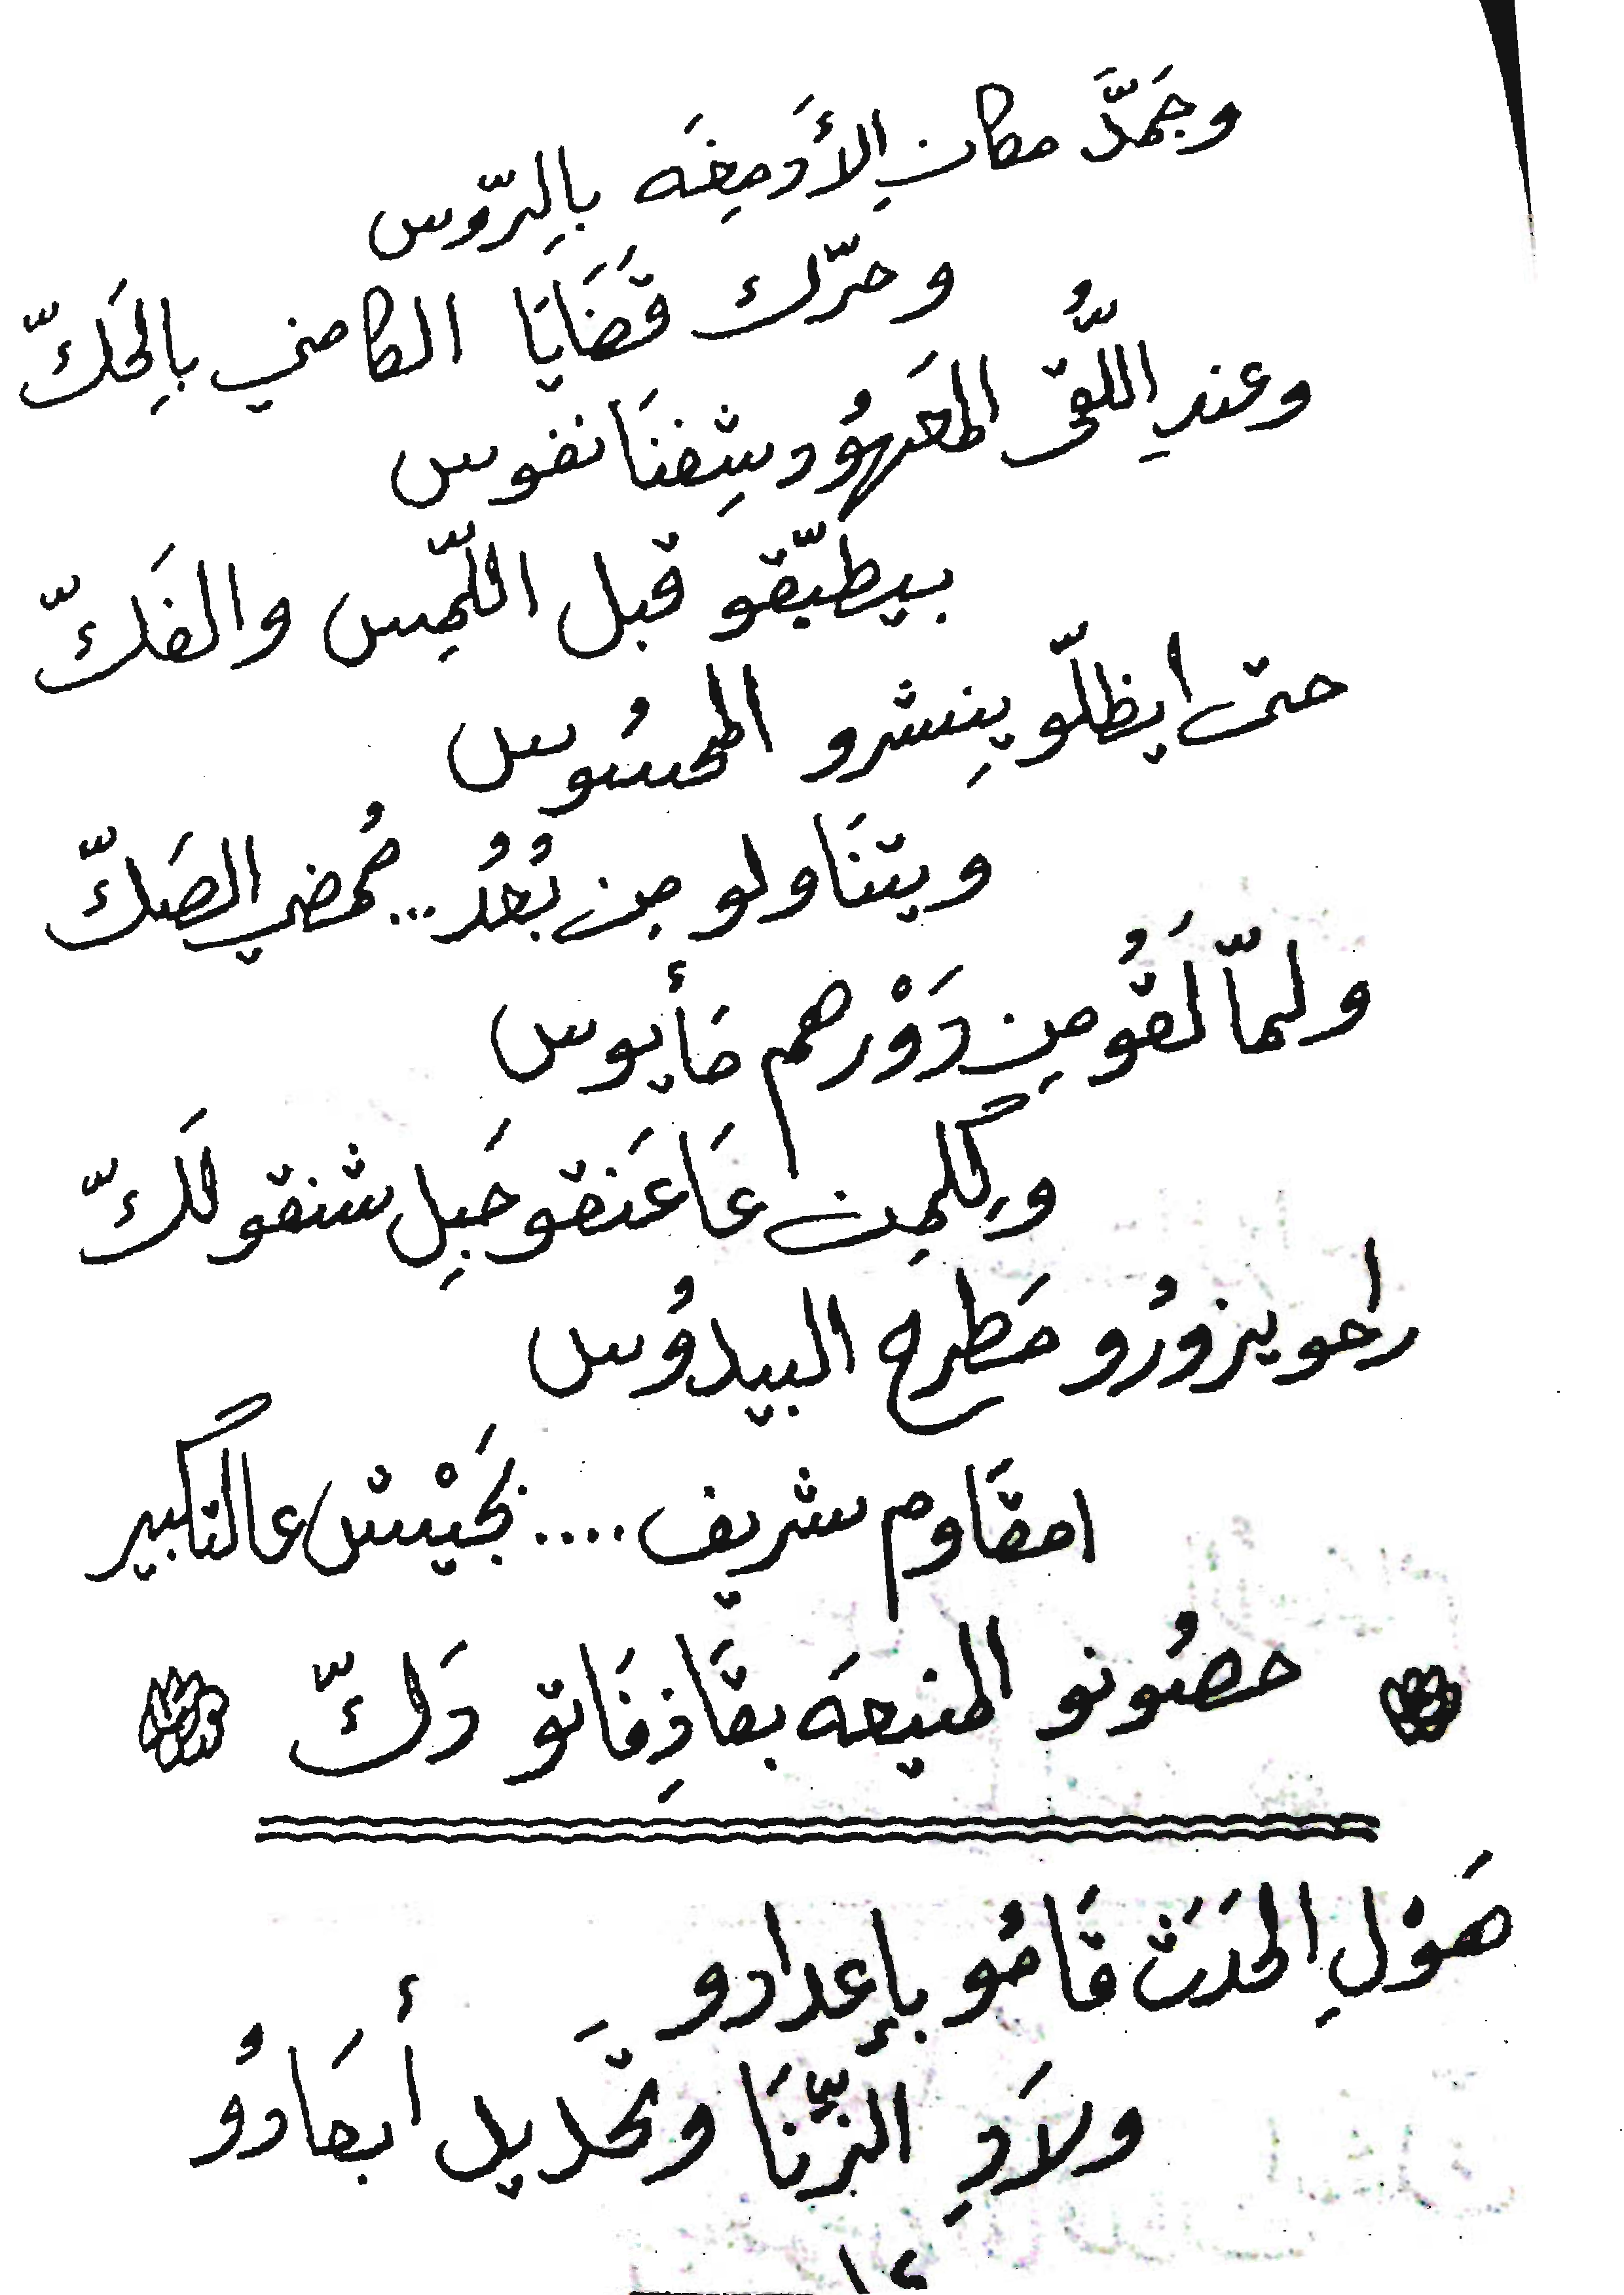 وجَمَدَّ مكانِ الأَدمِغَه بالِرّوس
وحرّك قَضَايَا الكامني بالِحَكّ
وعندِ اللُّقى المَعَهوُد بشِفنَا نفوس
بيطبّقو قبل اللّمِس والفَكّ
حتى ايظلّو يِنِشرو المحسُوس
ويتنَاولو من بُعُد... مُمضي الصَكّ
ولمّا لَقوُ مِن دَوْرهم مَأيوس
وكِلمِن عَاعَنقو حَبِل شنقو لَكّ
راحو يزورُو مَطِرح البيدوُس
امقَاوم شريف .... بجَيْش عالتكبير
حصُونو المنيعَه بقَاذِفَاتو دَكّ
هَوْلِ الحَدَث قَامُو بإعدادو
ولاَدِ الزّنَا وتحَديل أبعَادوُ
١٢